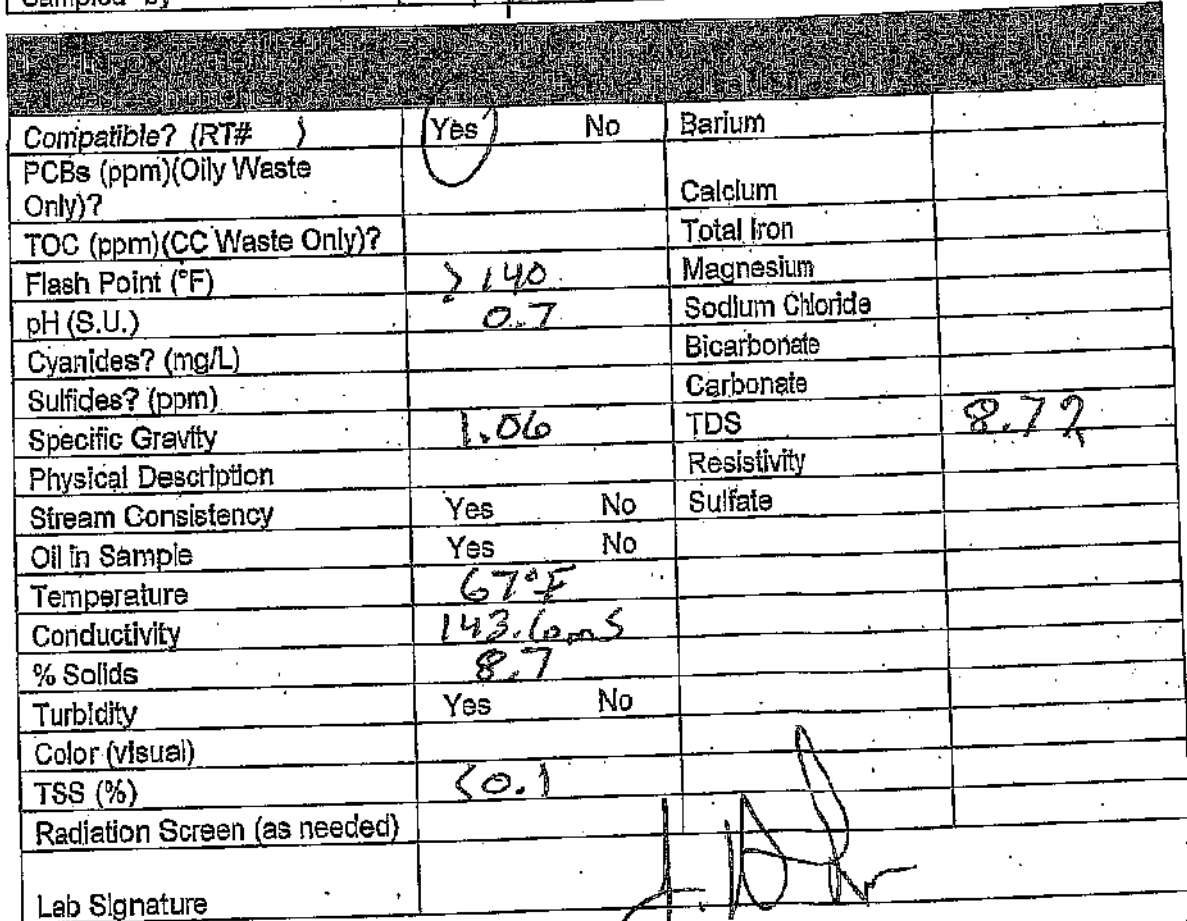 Sampled by
Compatible? (RT# ) Yes No Barium
PCBs (ppm)(Oily Waste Only)? Calcium
TOC (ppm)(CC Waste Only)? Total Iron
Flash Point (°F) >140 Magnesium
pH (S.U.) 0.7 Sodium Chloride
Cyanides? (mg/L) Bicarbonate
Sulfides? (ppm) Carbonate
Specific Gravity 1.06 TDS 8.7
Physical Description Resistivity
Stream Consistency Yes No Sulfate
Oil in Sample Yes No
Temperature 67°F
Conductivity 143.6 mS
% Solids 8.7
Turbidity Yes No
Color (visual)
TSS (%) <0.1
Radiation Screen (as needed)
Lab Signature